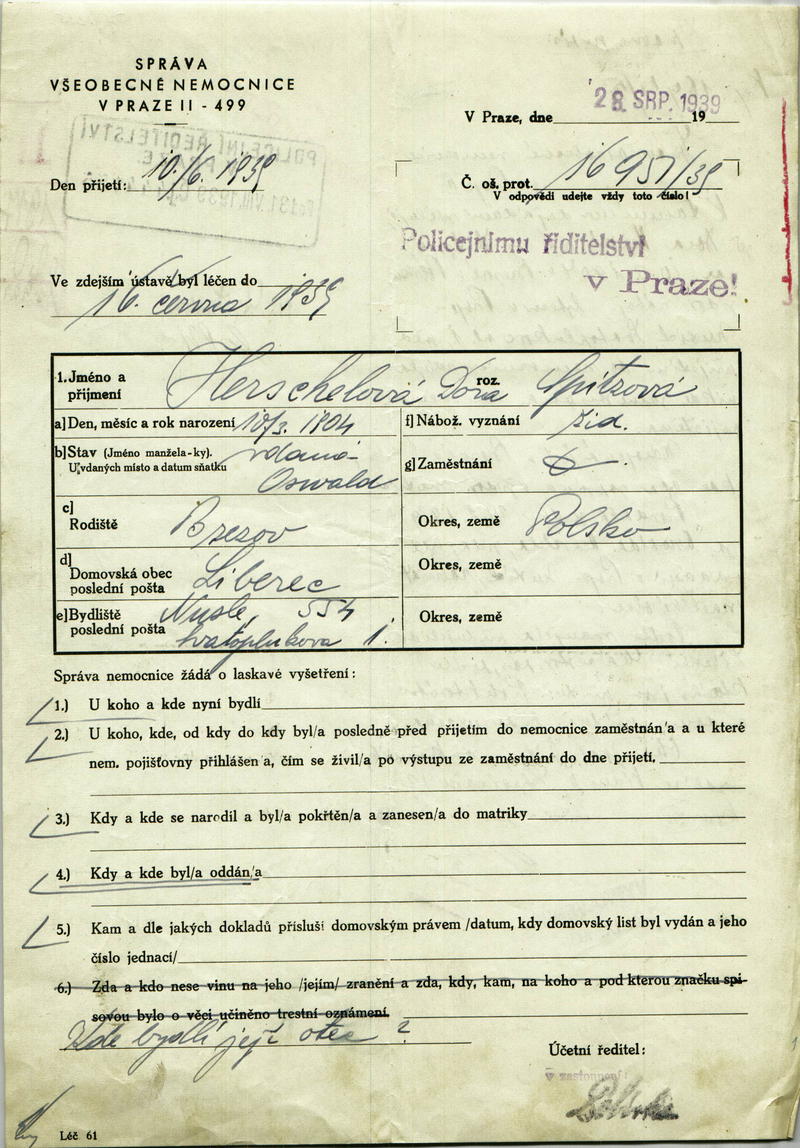 SPRÁVA
VŠEOBECNÉ NEMOCNICE
V PRAZE II - 499
28. SRP. 1939
V Praze, dne 19
Den přijetí: 10./6. 1939
Č. oš. prot. 16951/39
V odpovědi udejte vždy toto číslo!
Policejnímu řiditelství
v Praze!
Ve zdejším ústavě byl léčen do
16. června 1939
1. Jméno a přijmení Herschelová Dora roz. Spitzová
a] Den, měsíc a rok narození 10/3. 1904
f] Nábož. vyznání žid.
b] Stav (Jméno manžela-ky).
U vdaných místo a datum sňatku
vdaná
Oswald
g] Zaměstnání
c] Rodiště Brzezov
Okres, země Polsko
d] Domovská obec
poslední pošta Liberec
Okres, země
e] Bydliště Nusle, 554,
poslední pošta Svatoplukova 1.
Okres, země
Správa nemocnice žádá o laskavé vyšetření:
1.) U koho a kde nyní bydlí
2.) U koho, kde, od kdy do kdy byl/a posledně před přijetím do nemocnice zaměstnán/a a u které
nem. pojišťovny přihlášen a, čím se živil/a po výstupu ze zaměstnání do dne přijetí.
3.) Kdy a kde se narodil a byl/a pokřtěn/a a zanesen/a do matriky
4.) Kdy a kde byl/a oddán/a
5.) Kam a dle jakých dokladů přísluší domovským právem /datum, kdy domovský list byl vydán a jeho
číslo jednací/
6.) Zda a kdo nese vinu na jeho /jejím/ zranění a zda, kdy, kam, na koho a pod kterou značku spi-
sovou bylo o věci učiněno trestní oznámení.
Kde bydlí její otec?
Účetní ředitel:
v zastoupení:
Léč 61